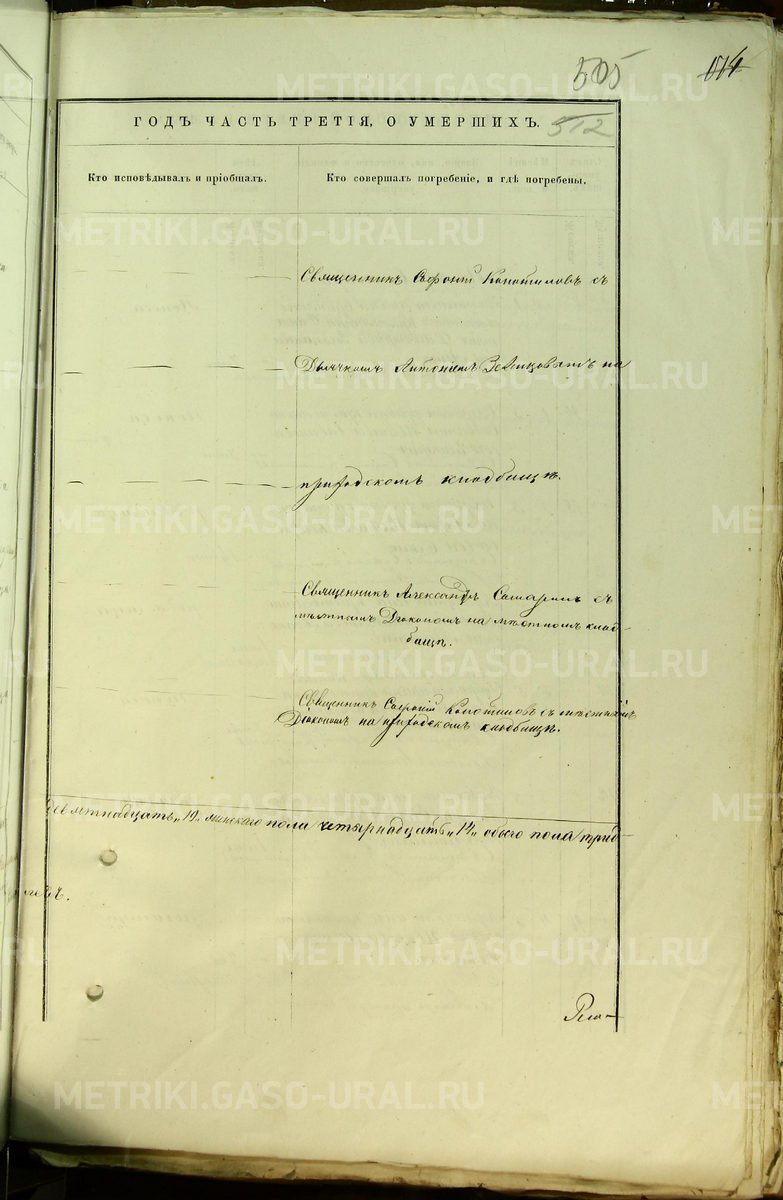 505
514
512
ГОДЪ ЧАСТЬ ТРЕТІЯ, О УМЕРШИХЪ.
Кто исповѣдывалъ и пріобщалъ.
Кто совершалъ погребеніе, и гдѣ погребены.
Священникъ Софоній Копотиловъ съ
Дьячкомъ Антоніемъ на
приходскомъ кладбищѣ.
Священникъ Александръ съ
мѣстнымъ Діакономъ на мѣстномъ клад-
бищѣ.
Священникъ Софоній Копотиловъ съ мѣстнымъ
Діакономъ на приходскомъ кладбищѣ.
девятнадцать „19„ женскаго пола четырнадцать „14„ обоего пола трид-
METRIKI.GASO-URAL.RU